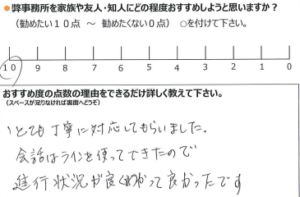 ● 弊事務所を家族や友人・知人にどの程度おすすめしようと思いますか?
(勧めたい10点 ～ 勧めたくない0点) ○を付けて下さい。
10 9 8 7 6 5 4 3 2 1 0
おすすめ度の点数の理由をできるだけ詳しく教えて下さい。
(スペースが足りなければ裏面へどうぞ)
とても丁寧に対応してもらいました。
会話はラインを使ってできたので
進行状況が良くわかって良かったです